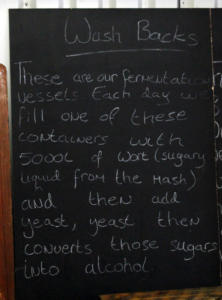 Wash Backs
These are our fermentation
vessels. Each day we
fill one of these
containers with
5000L of wort (sugary
liquid from the Mash)
and then add
yeast, yeast then
converts those sugars
into alcohol.